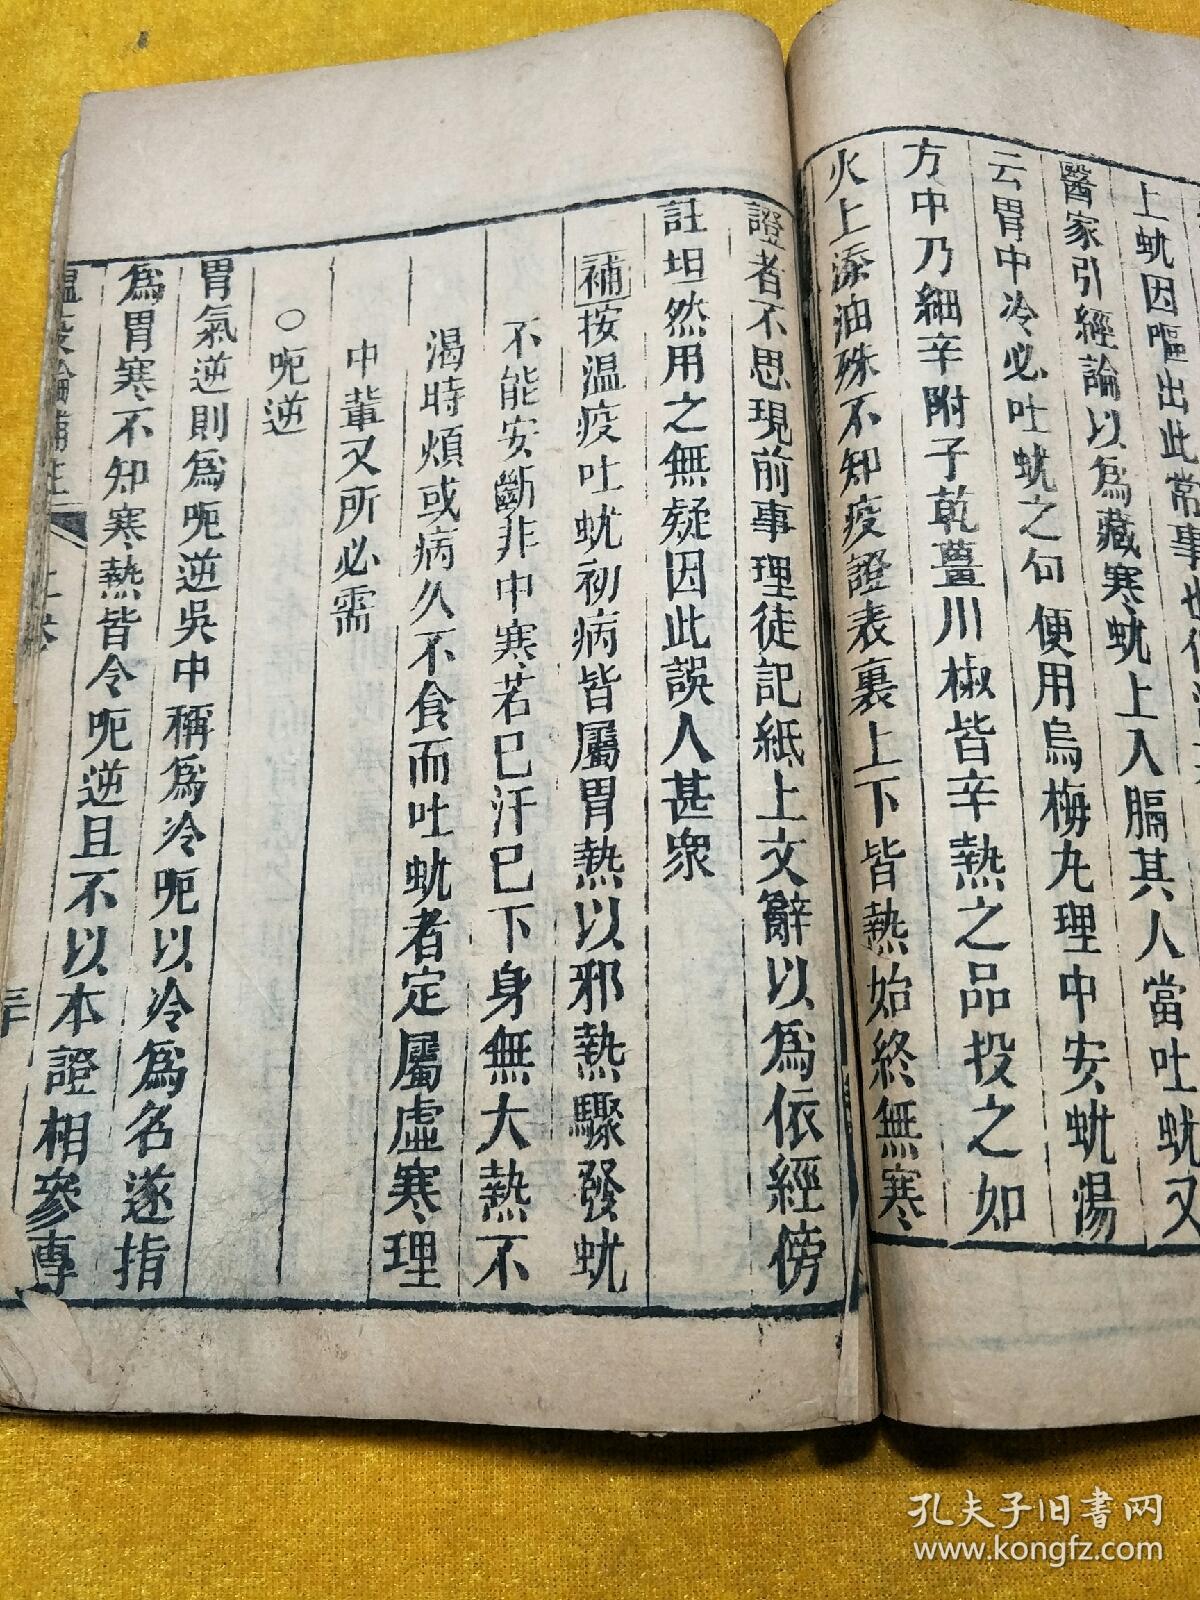 上蚘因嘔出此常事也
醫家引經論以爲藏寒蚘上入膈其人當吐蚘又
云胃中冷必吐蚘之句便用烏梅丸理中安蚘湯
方中乃細辛附子乾薑川椒皆辛熱之品投之如
火上添油殊不知疫證表裏上下皆熱始終無寒
證者不思現前事理徒記紙上文辭以爲依經傍
註坦然用之無疑因此誤人甚衆
補按温疫吐蚘初病皆屬胃熱以邪熱驟發蚘
不能安斷非中寒若已汗已下身無大熱不
渴時煩或病久不食而吐蚘者定屬虛寒理
中輩又所必需
○呃逆
胃氣逆則爲呃逆吳中稱爲冷呃以冷爲名遂指
爲胃寒不知寒熱皆令呃逆且不以本證相參專
上卷
三十
孔夫子旧书网
www.kongfz.com